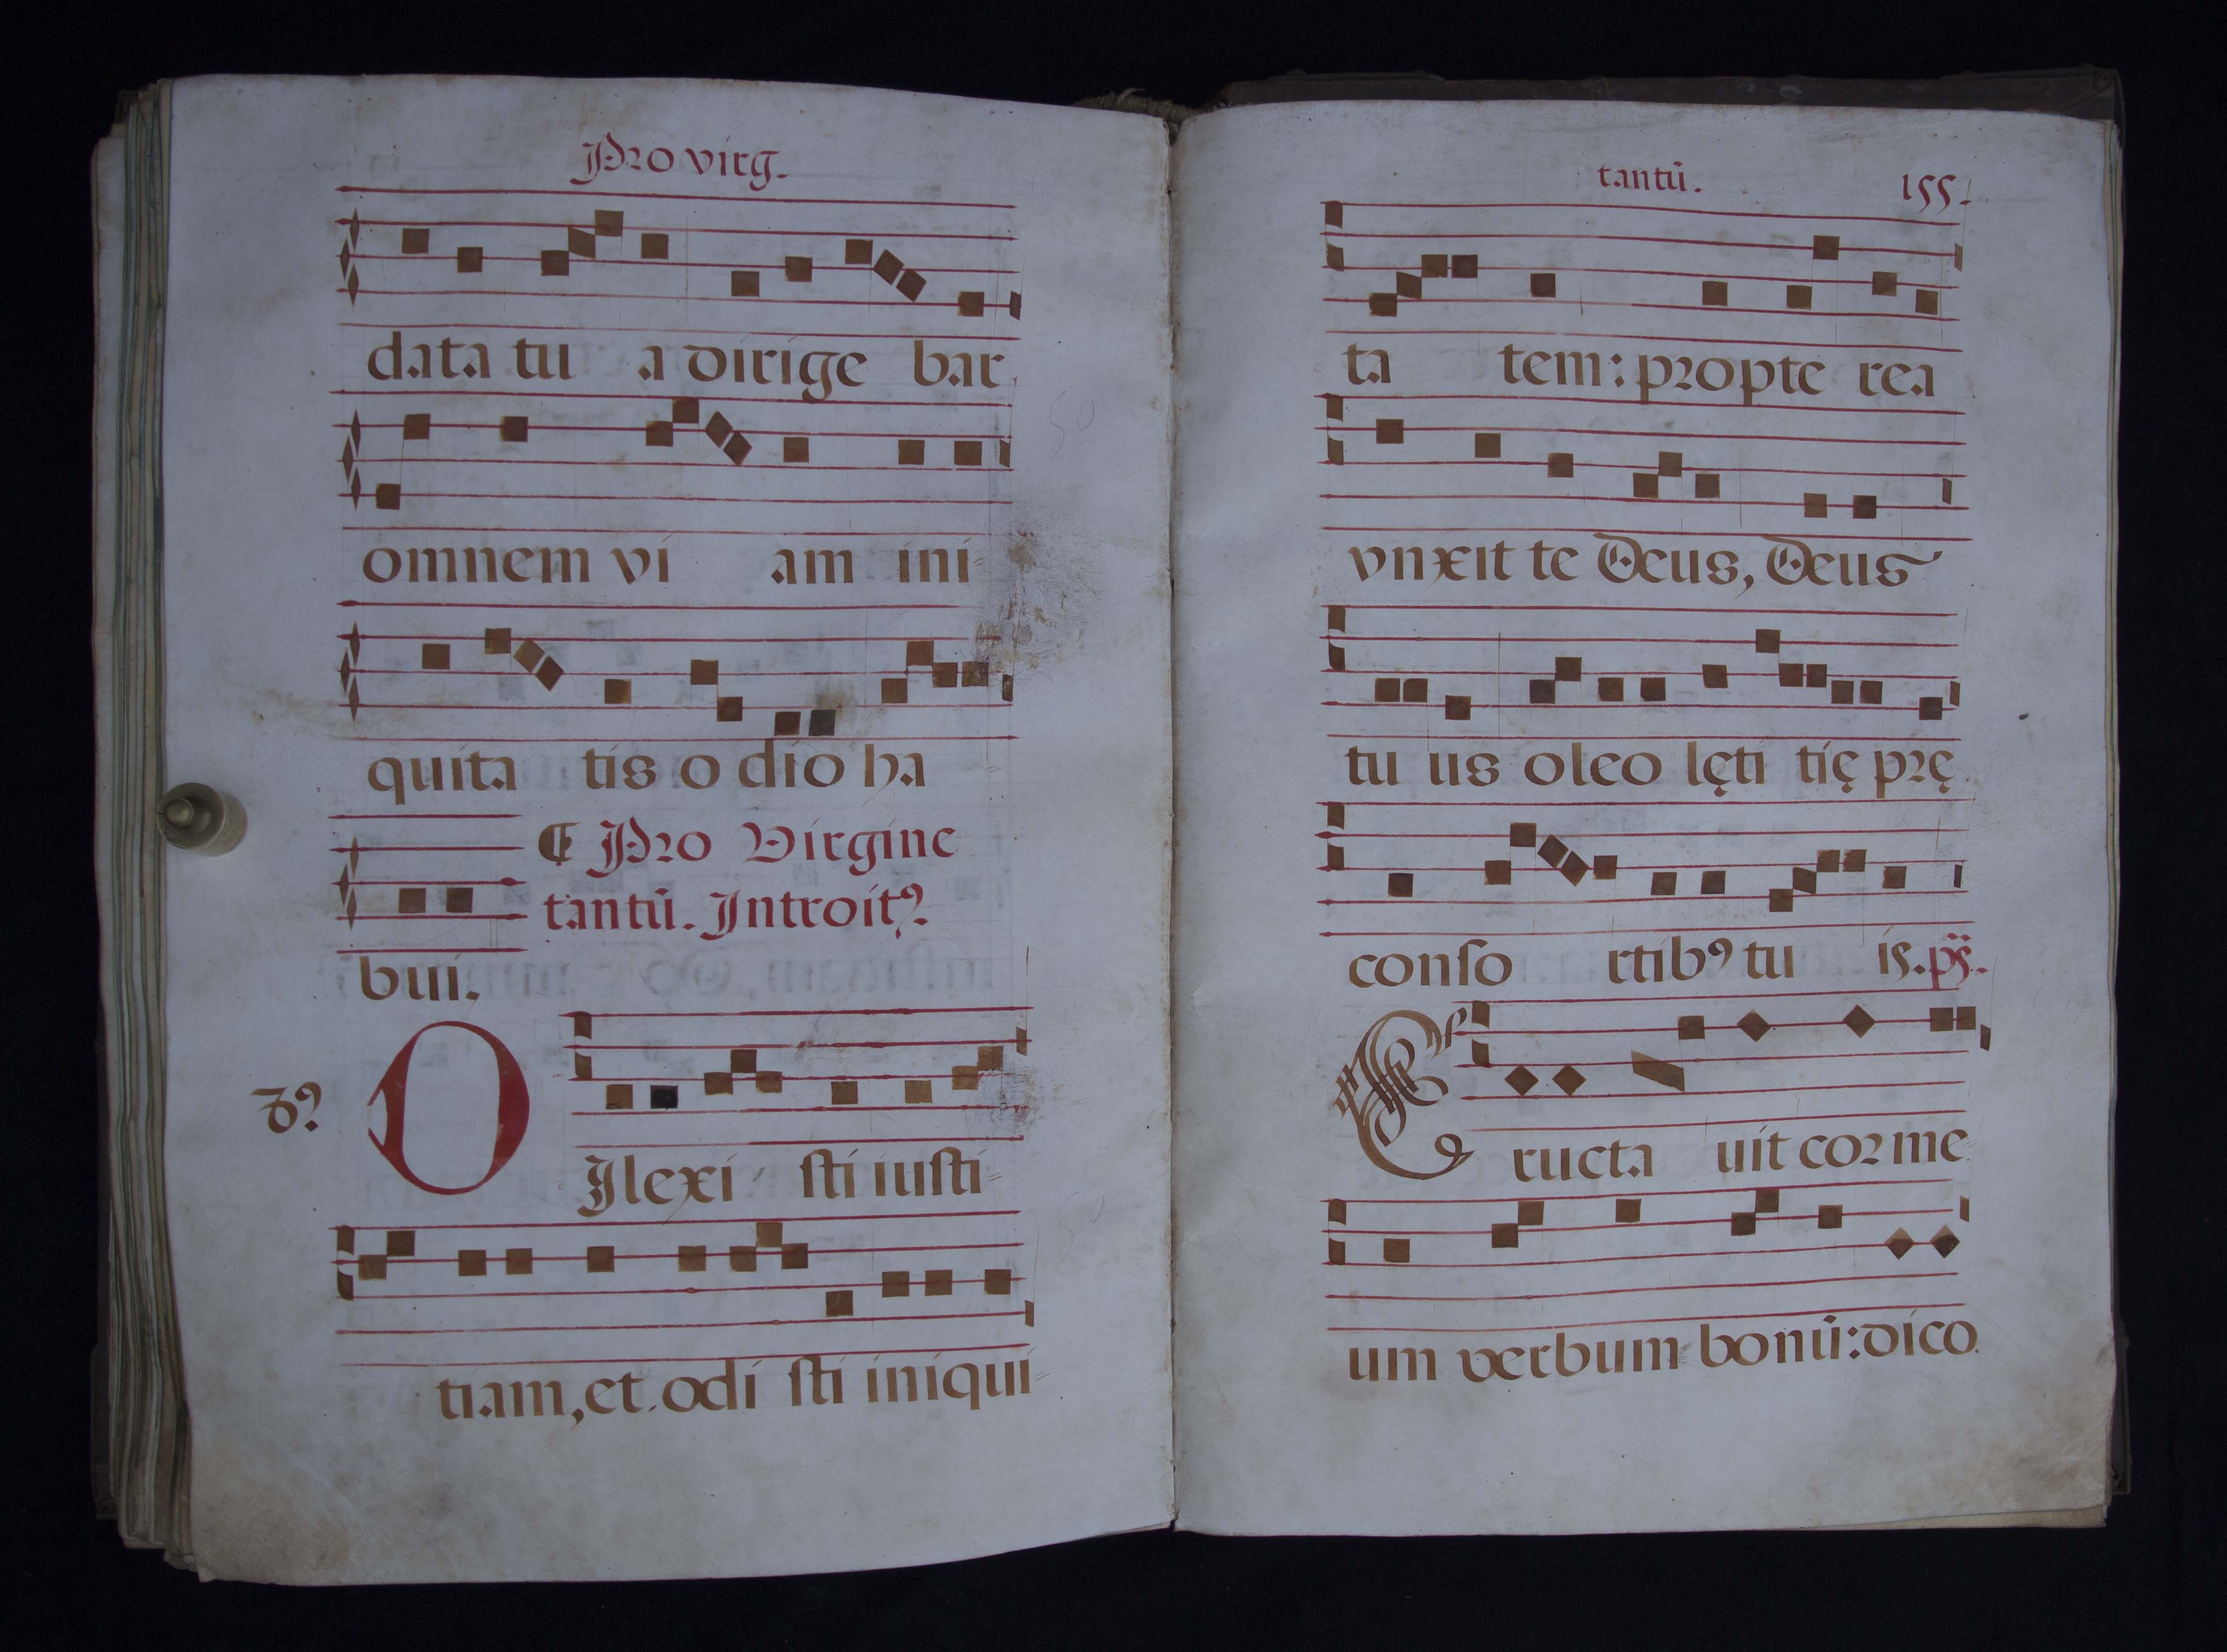 Pro virg.
data tu a dirige bar
omnem vi am ini
quita tis o dio ha
¶ Pro Virgine
tantū. Introitꝰ.
bui.
8ꝰ
D Ilexi sti iusti
tiam, et odi sti iniqui
tantū. 155.
ta tem: propte rea
vnxit te Deus, Deus
tu us oleo lęti tię prę
conso rtibꝰ tu is. ps.
E ructa uit cor me
um verbum bonū: dico